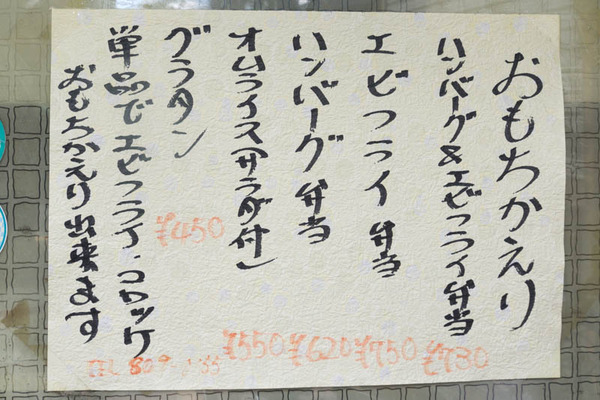 おもちかえり
ハンバーグ&エビフライ弁当
¥730
エビフライ弁当
¥750
ハンバーグ弁当
¥620
オムライス(サラダ付)
¥550
グラタン
¥450
単品でエビフライ・コロッケ
おもちかえり出来ます
TEL 809-